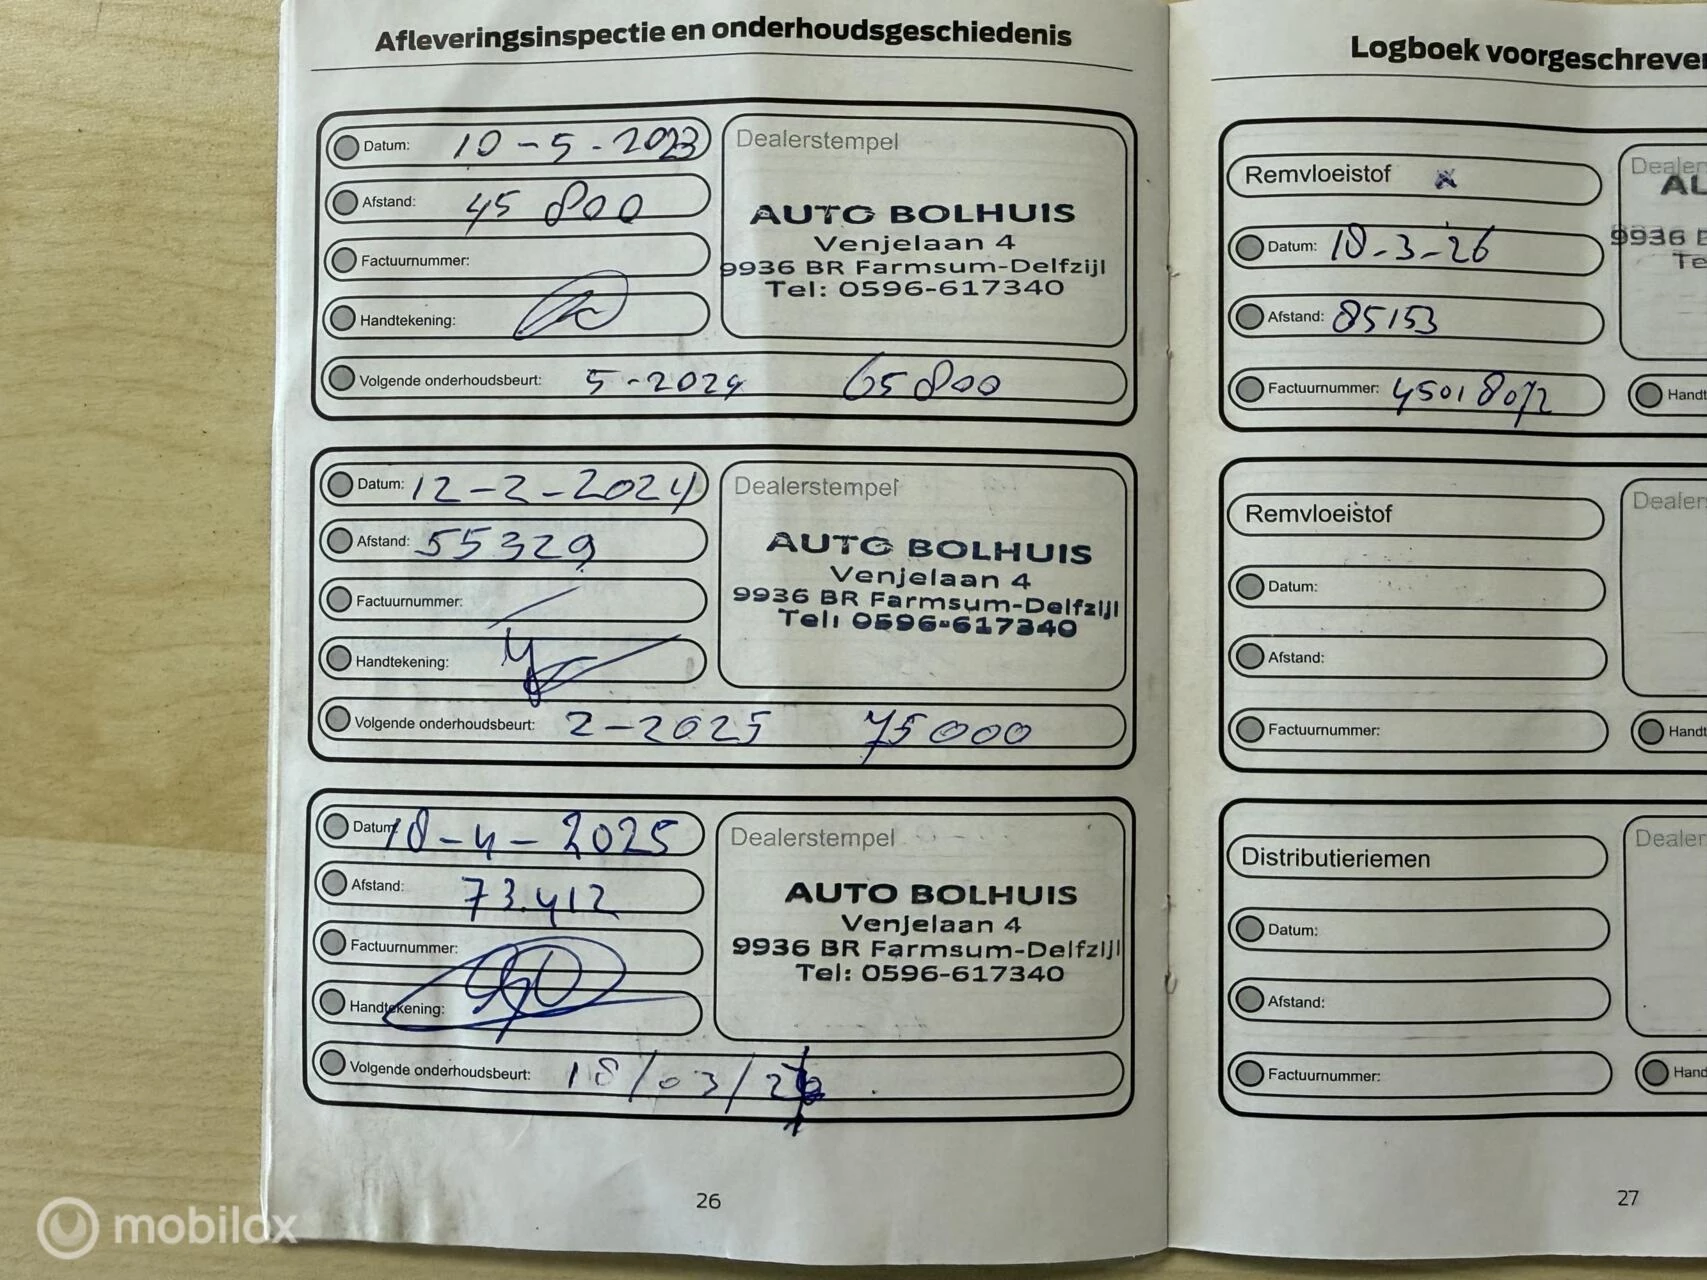 Afleveringsinspectie en onderhoudsgeschiedenis
Datum: 10-5-2023
Afstand: 45 800
Factuurnummer:
Handtekening:
Volgende onderhoudsbeurt: 5-2024 65800
Dealerstempel
AUTO BOLHUIS
Venjelaan 4
9936 BR Farmsum-Delfzijl
Tel: 0596-617340
Datum: 12-2-2024
Afstand: 55329
Factuurnummer:
Handtekening:
Volgende onderhoudsbeurt: 2-2025 75000
Dealerstempel
AUTO BOLHUIS
Venjelaan 4
9936 BR Farmsum-Delfzijl
Tel: 0596-617340
Datum: 18-4-2025
Afstand: 73.412
Factuurnummer:
Handtekening:
Volgende onderhoudsbeurt: 18/03/26
Dealerstempel
AUTO BOLHUIS
Venjelaan 4
9936 BR Farmsum-Delfzijl
Tel: 0596-617340
26
Logboek voorgeschreven
Remvloeistof x
Datum: 18-3-26
Afstand: 85153
Factuurnummer: 45018072
Dealer
AU
9936 B
Te
Handt
Remvloeistof
Datum:
Afstand:
Factuurnummer:
Dealer
Handt
Distributieriemen
Datum:
Afstand:
Factuurnummer:
Dealer
Hand
27
mobilox